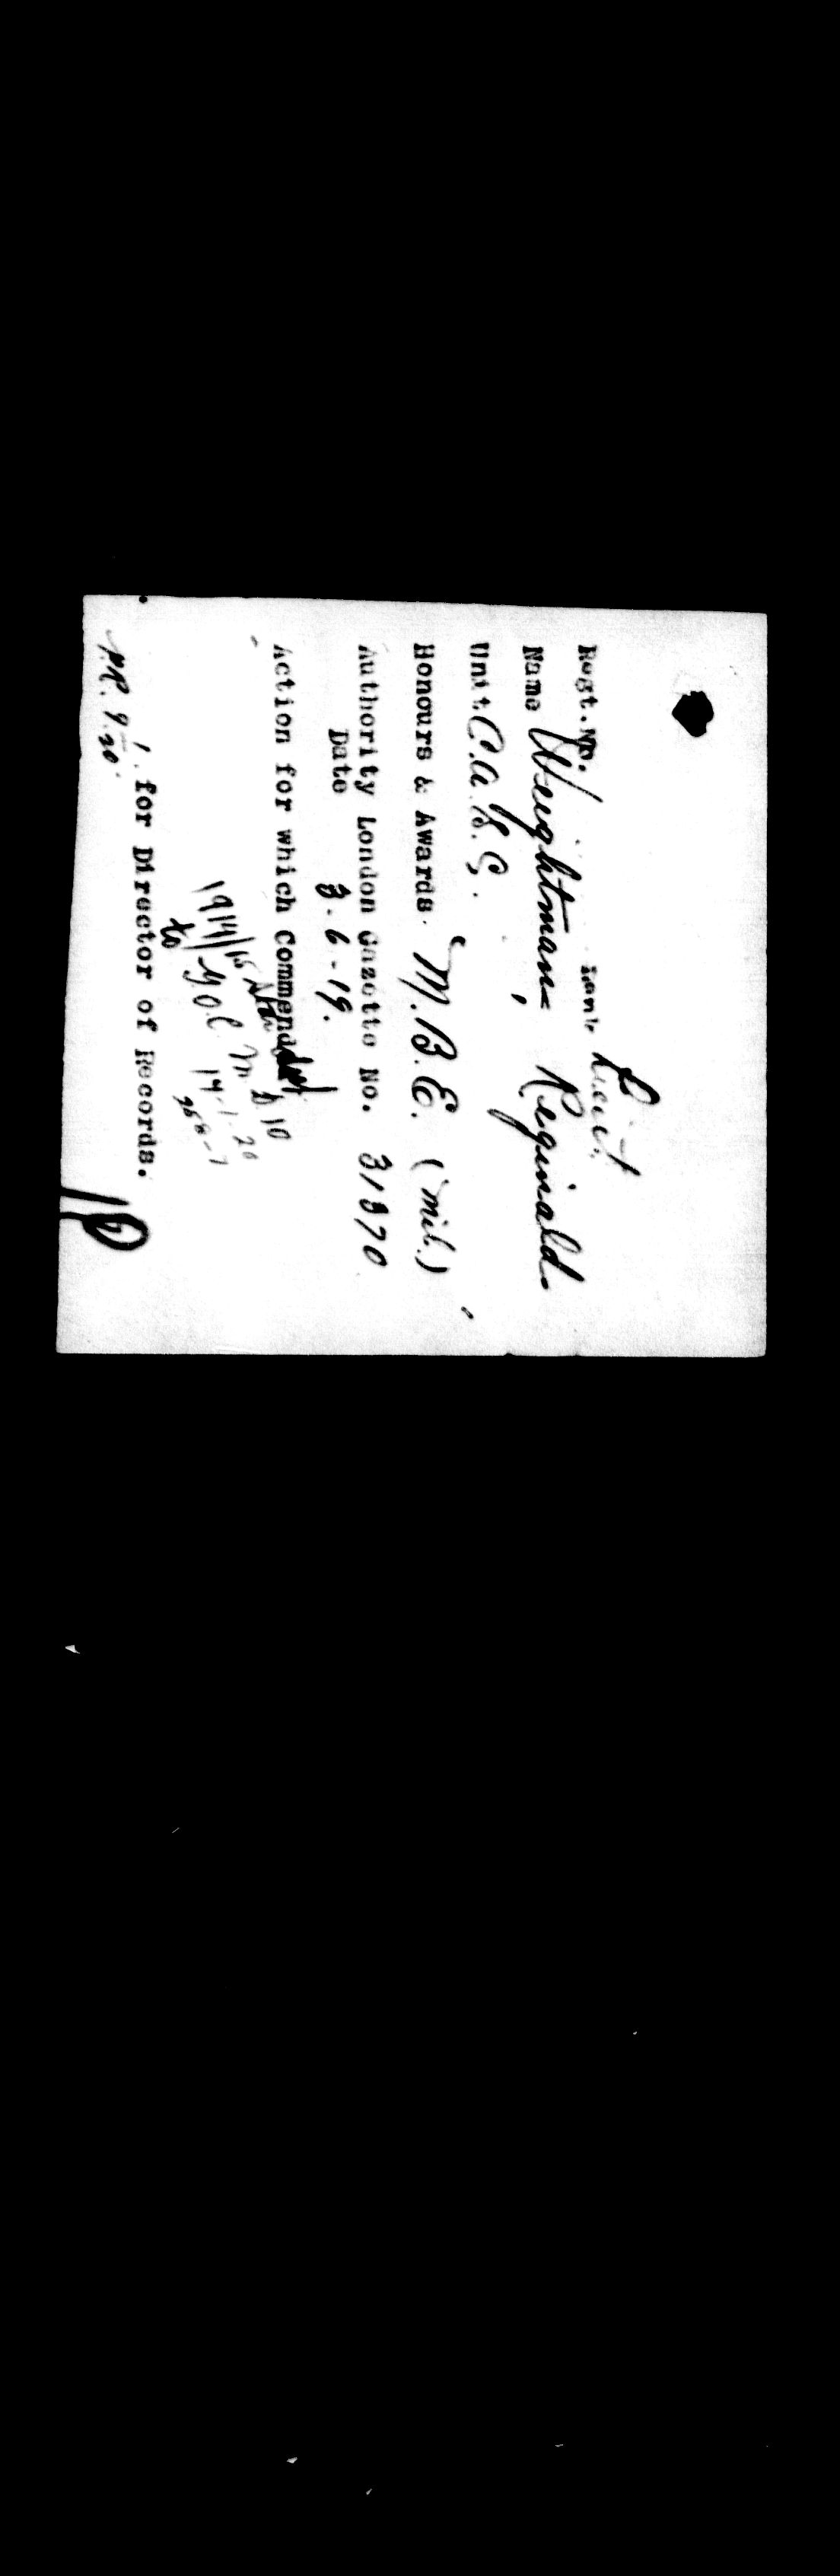 Regt. No. Rank Lieut.
Name Weightman, Reginald.
Unit C.A.S.C.
Honours & Awards. M.B.E. (mil.)
Authority London Gazette No. 31370
Date 3-6-19.
Action for which Commended
1914/15
to G.O.C. M.D. 10
19-1-20
for Director of Records.